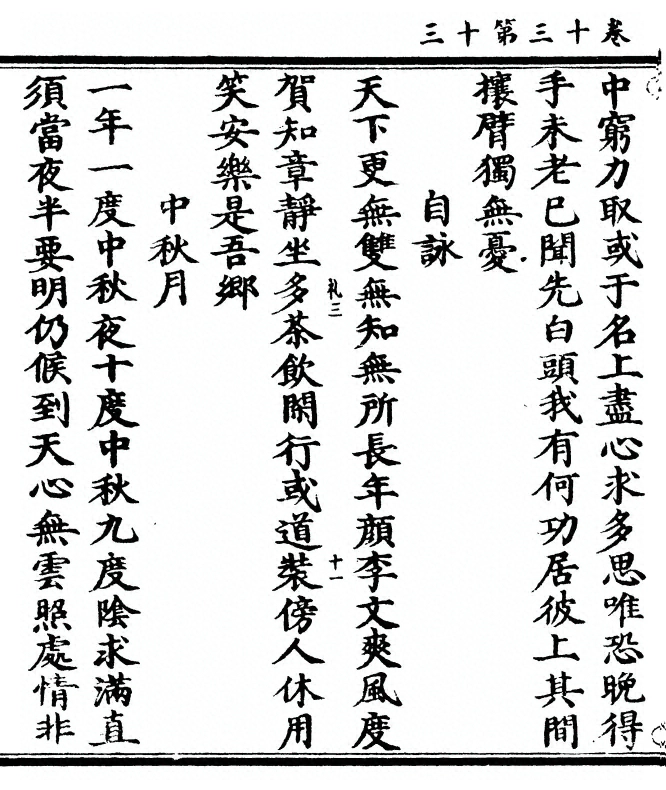 卷十三第十三
中窮力取或于名上盡心求多思唯恐晚得
手未老已聞先白頭我有何功居彼上其間
攘臂獨無憂
自詠
天下更無雙無知無所長年顔李文爽風度
賀知章靜坐多茶飲閑行或道裝傍人休用
札三
十一
笑安樂是吾郷
中秋月
一年一度中秋夜十度中秋九度陰求滿直
須當夜半要明仍候到天心無雲照處情非